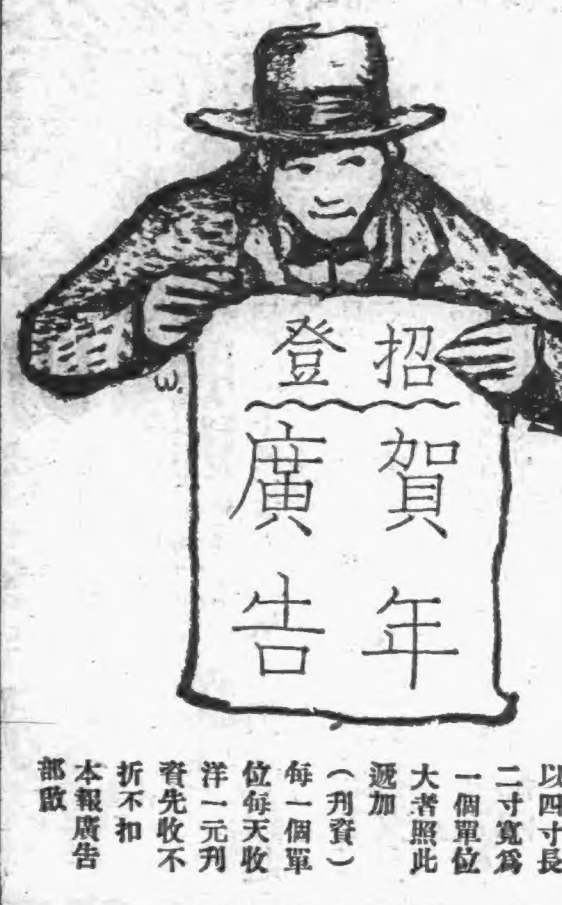 招登
賀年
廣告
以四寸長
二寸寬爲
一個單位
大者照此
遞加
（刋資）
每一個單
位每天收
洋一元刋
資先收不
折不扣
本報廣告
部啟